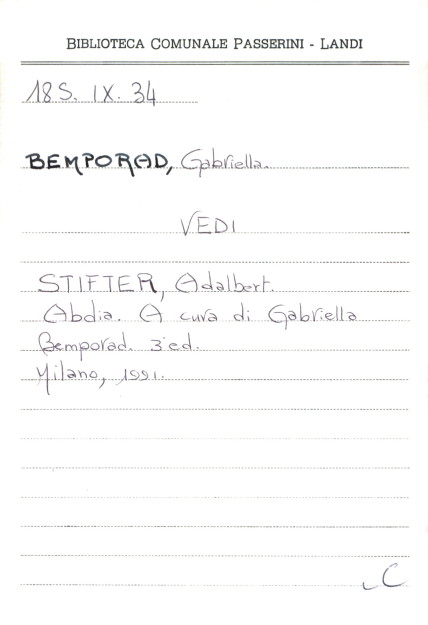 BIBLIOTECA COMUNALE PASSERINI - LANDI
18S. IX. 34
BEMPORAD, Gabriella.
VEDI
STIFTER, Adalbert.
Abdia. A cura di Gabriella
Bemporad. 3ªed.
Milano, 1991.
C